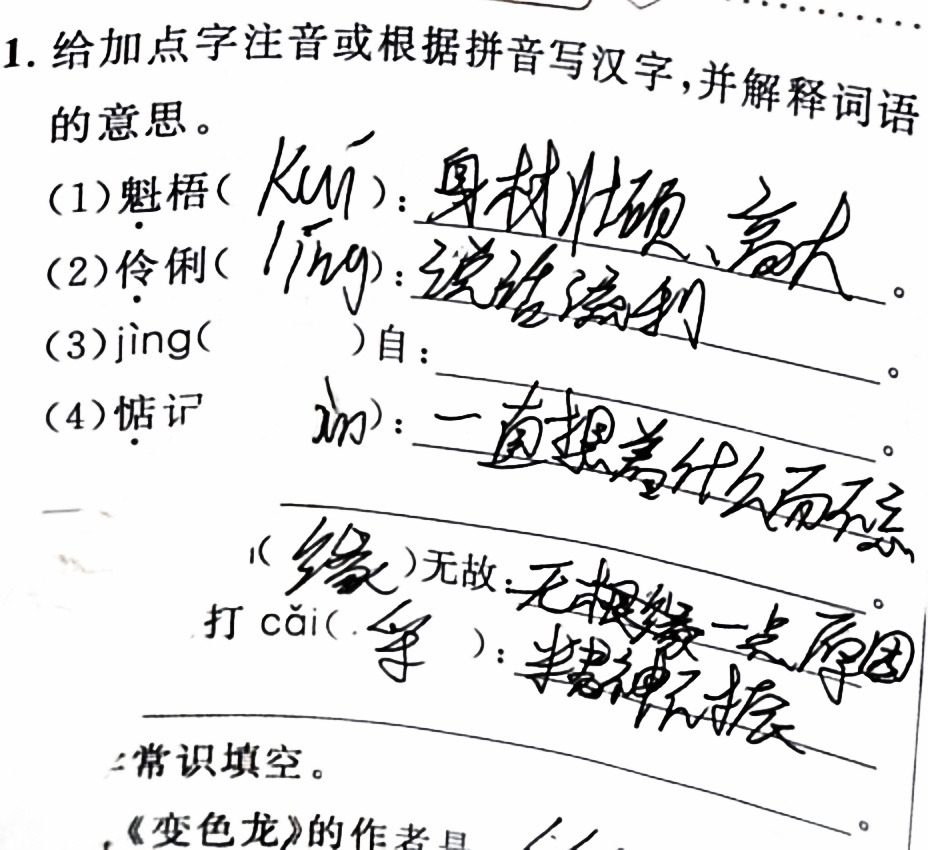 1. 给加点字注音或根据拼音写汉字,并解释词语
的意思。
(1)魁梧( Kuí ):身材壮硕、高大。
(2)伶俐( líng):说话流利。
(3)jìng( )自:。
(4)惦记 ):一直想着什么而不忘
( 缘 )无故:无根缘一点原因。
打 cǎi( ):精神不振
。
常识填空。
《变色龙》的作者是